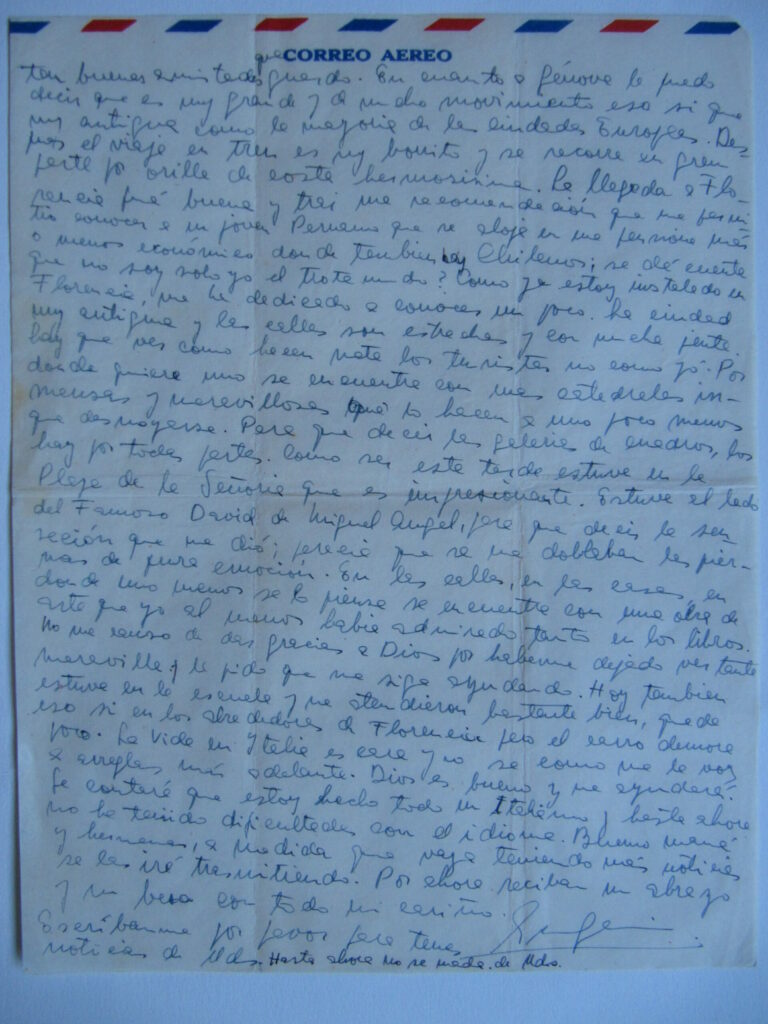 CORREO AEREO
tan buenas amistades que guardo. En cuanto a Génova le puedo
decir que es muy grande y de mucho movimiento eso si que
muy antigua como la mayoria de las ciudades Europeas. Des-
pues el viaje en tren es muy bonito y se recorre en gran
parte por orilla de costa hermosisima. La llegada a Flo-
rencia fué buena y traí una recomendación que me permi
tio conocer a un joven Peruano que se aloja en una pensione más
o menos económica donde tambien hay Chilenos; se dá cuenta
que no soy solo yo el trota mundo? Como ya estoy instalado en
Florencia, me he dedicado a conocer un poco. La ciudad
muy antigua y las calles son estrechas y con mucha gente.
hay que ver como hacen nata los turistas no como yó. Por
donde quiera uno se encuentra con unas catedrales in-
mensas y maravillosas que lo hacen a uno poco menos
que desmayarse. Para que decir las galerias de cuadros, los
hay por todas partes. Como ser esta tarde estuve en la
Plaza de la Señoria que es impresionante. Estuve al lado
del Famoso David de Miguel Angel, para que decir la sen
sación que me dió; parecia que se me doblaban las pier-
nas de pura emoción. En las calles, en las casas, en
donde uno menos se lo piensa se encuentra con una obra de
arte que yo al menos habia admirado tanto en los libros.
No me canso de dar gracias a Dios por haberme dejado ver tanta
maravilla y le pido que me siga ayudando. Hoy tambien
estuve en la escuela y me atendieron bastante bien, queda
eso si en los alrededores de Florencia pero el carro demora
poco. La vida en Italia es cara y no se como me la voy
a arreglar más adelante. Dios es bueno y me ayudará.
Le contaré que estoy hecho todo un Italiano y hasta ahora
no he tenido dificultades con el idioma. Bueno mamá
y hermanas, a medida que vaya teniendo más noticias
se las iré trasmitiendo. Por ahora reciban un abrazo
y un beso con todo mi cariño.
Escríbanme por favor para tener
noticias de Uds. Hasta ahora no se nada de Uds.